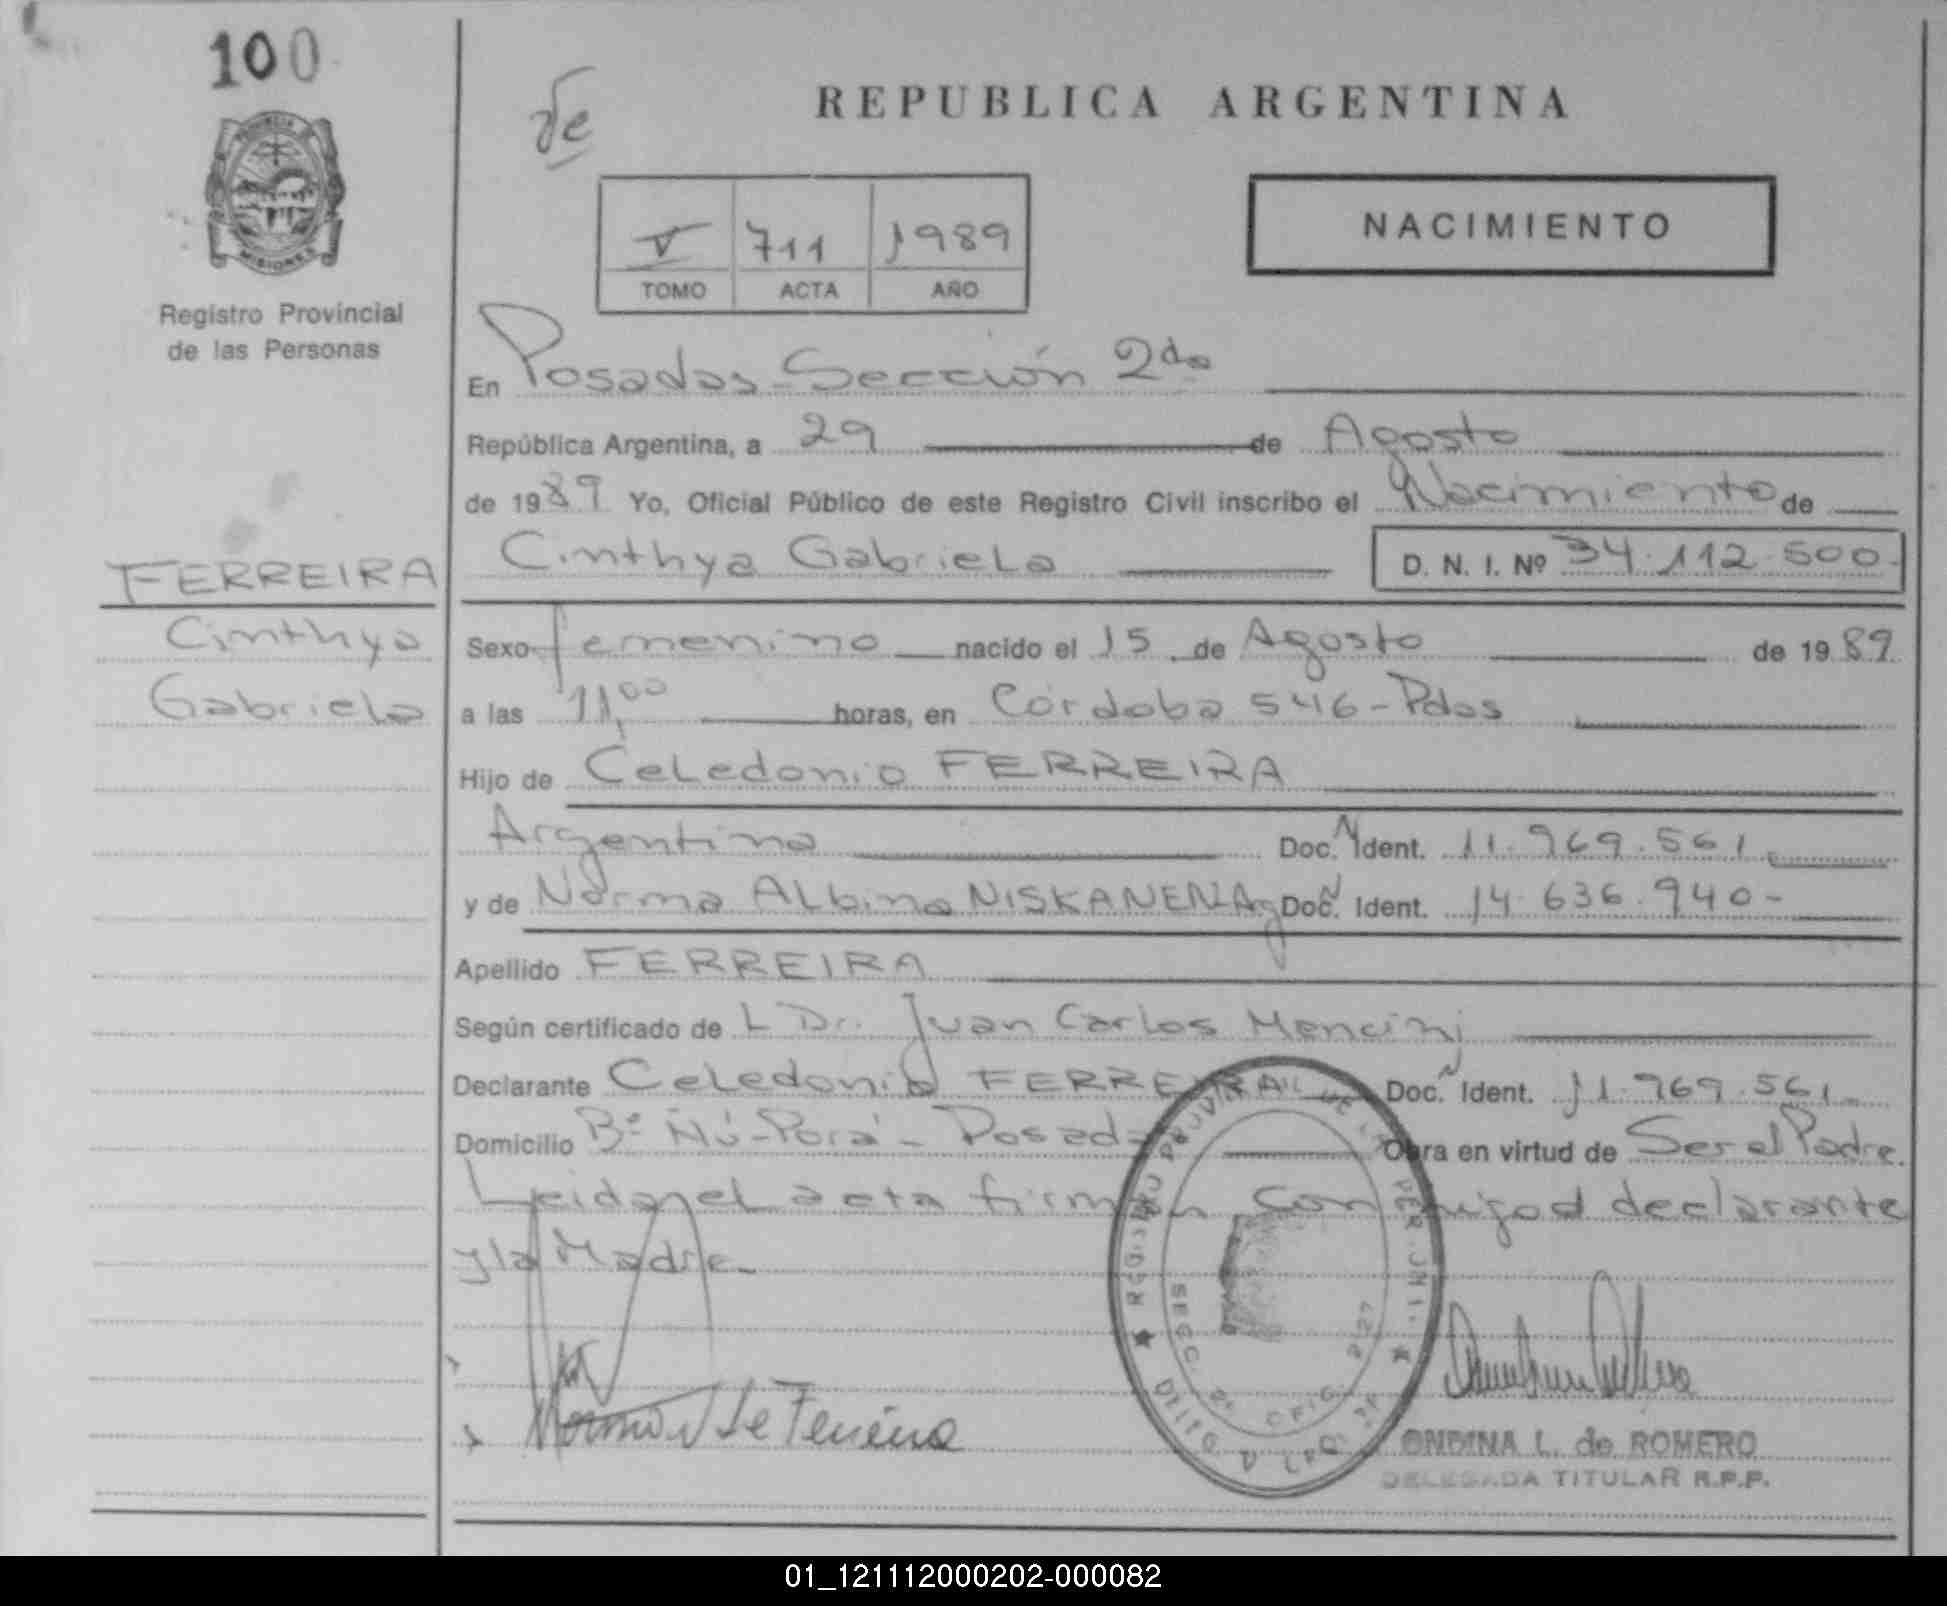 100
REPUBLICA ARGENTINA
PROVINCIA DE
MISIONES
Registro Provincial
de las Personas
V 711 1989
TOMO ACTA AÑO
NACIMIENTO
En Posadas - Sección 2da
República Argentina, a 29 de Agosto
de 1989 Yo, Oficial Público de este Registro Civil inscribo el Nacimiento de
FERREIRA
Cinthya Gabriela D. N. I. Nº 34.112.500-
Cinthya
Gabriela
Sexo femenino nacido el 15 de Agosto de 1989
a las 11,00 horas, en Córdoba 546 - Pdas
Hijo de Celedonio FERREIRA
Argentino Doc. N Ident. 11.969.561
y de Norma Albina NISKANEN Arg Doc. N Ident. 14.636.940-
Apellido FERREIRA
Según certificado de L Dr. Juan Carlos Mencini
Declarante Celedonio FERREIRA Doc. N Ident. 11.969.561-
Domicilio Bº Ñú-Porá - Posadas Obra en virtud de Ser el Padre.
Leida el acta firman conmigo el declarante
y la Madre-
ONDINA L. de ROMERO
DELEGADA TITULAR R.P.P.
01_121112000202-000082